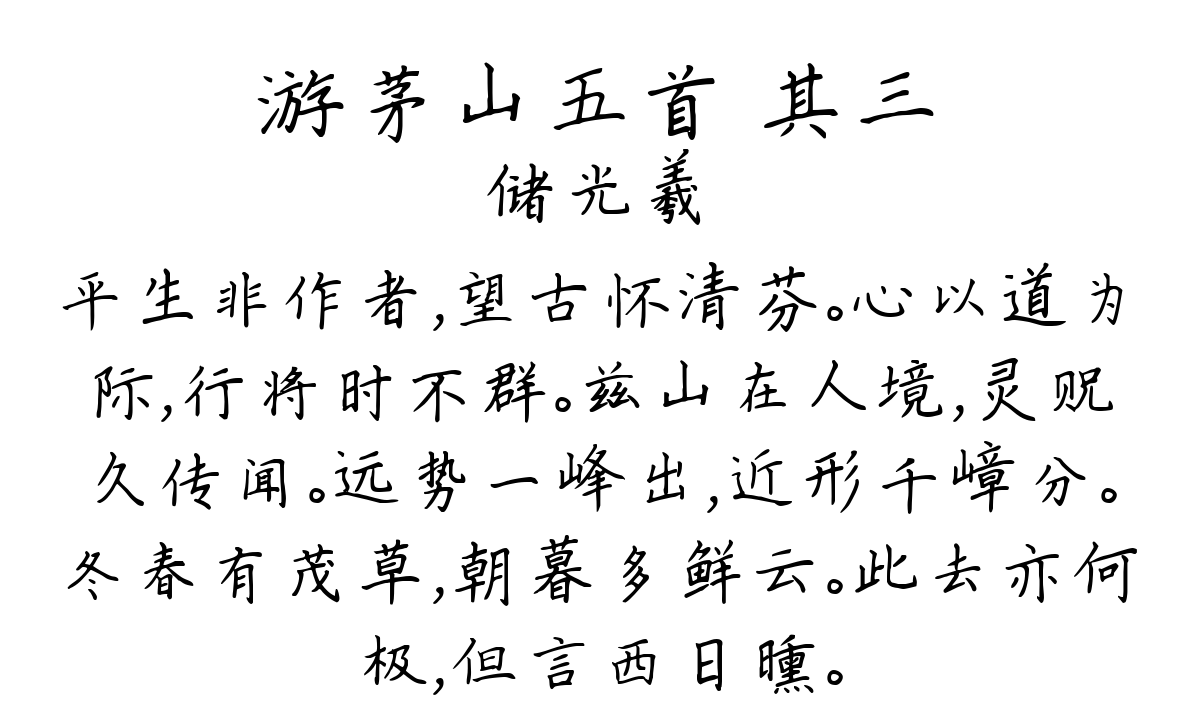 游茅山五首 其三
储光羲
平生非作者,望古怀清芬。心以道为
际,行将时不群。兹山在人境,灵贶
久传闻。远势一峰出,近形千嶂分。
冬春有茂草,朝暮多鲜云。此去亦何
极,但言西日曛。